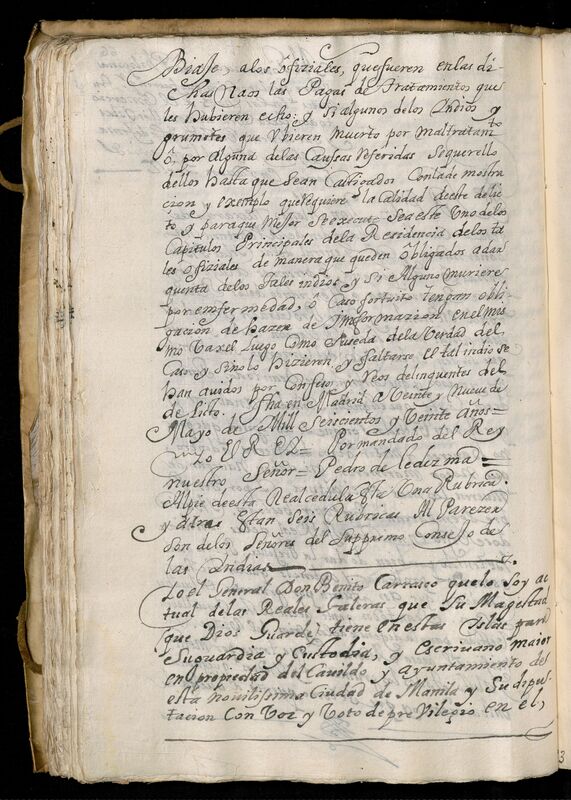 Brase, a los ofiziales, que fueren en las di-
chas Naos las Pagas de tratamientos que
les hubieren echo; y si algunos de los Yndios y
grumetes que Vbieren muerto por maltratamto
ô, por alguna de las Caussas Referidas Se querello
dellos hasta que Sean Castigados Con la demostra
cion y exemplo que Requiere la Calidad de este deli-
to y para que Mejor Se execute Sea este Vno de los
Capitulos Principales de la Residencia de los ta
les ofiziales de manera que queden ôbligados a dar
quenta de los Tales indios, y Si Alguno muriere
por emfermedad, ô Caso fortuito tengan obli-
gacion de hazer de Imformazion, en el mis
mo Vaxel Luego Como Suseda de la Verdad del
Caso y Sino lo hizieren y faltarse el tal indio se
han auidos por Confeso, y Reos delinquentes del
de Licto. fha en Madrid a Veinte y Nueve de
Mayo de Mill Seiscientos y Veinte Años=
Yo El REY= Por mandado del Rey
nuestro Señor= Pedro de ledizma=
Al pie de esta Real cedula Esta Una Rubrica.
y atras Estan Seis Rubricas Al Parezer
Son de los Señores del Suppremo Consejo de
las Yndias
Yo el General Don Benito Carrasco que lo Soy ac
tual de las Reales Galeras que Su Magestad
que Dios Guarde, tiene en estas Islas para
Su guardia y Custodia, y escriuano maior
en propiedad del Cauildo y ayuntamiento de
esta novilissima Ciudad de Manila y Su dipu-
tacion Con Voz y Voto de preVilegio en el,